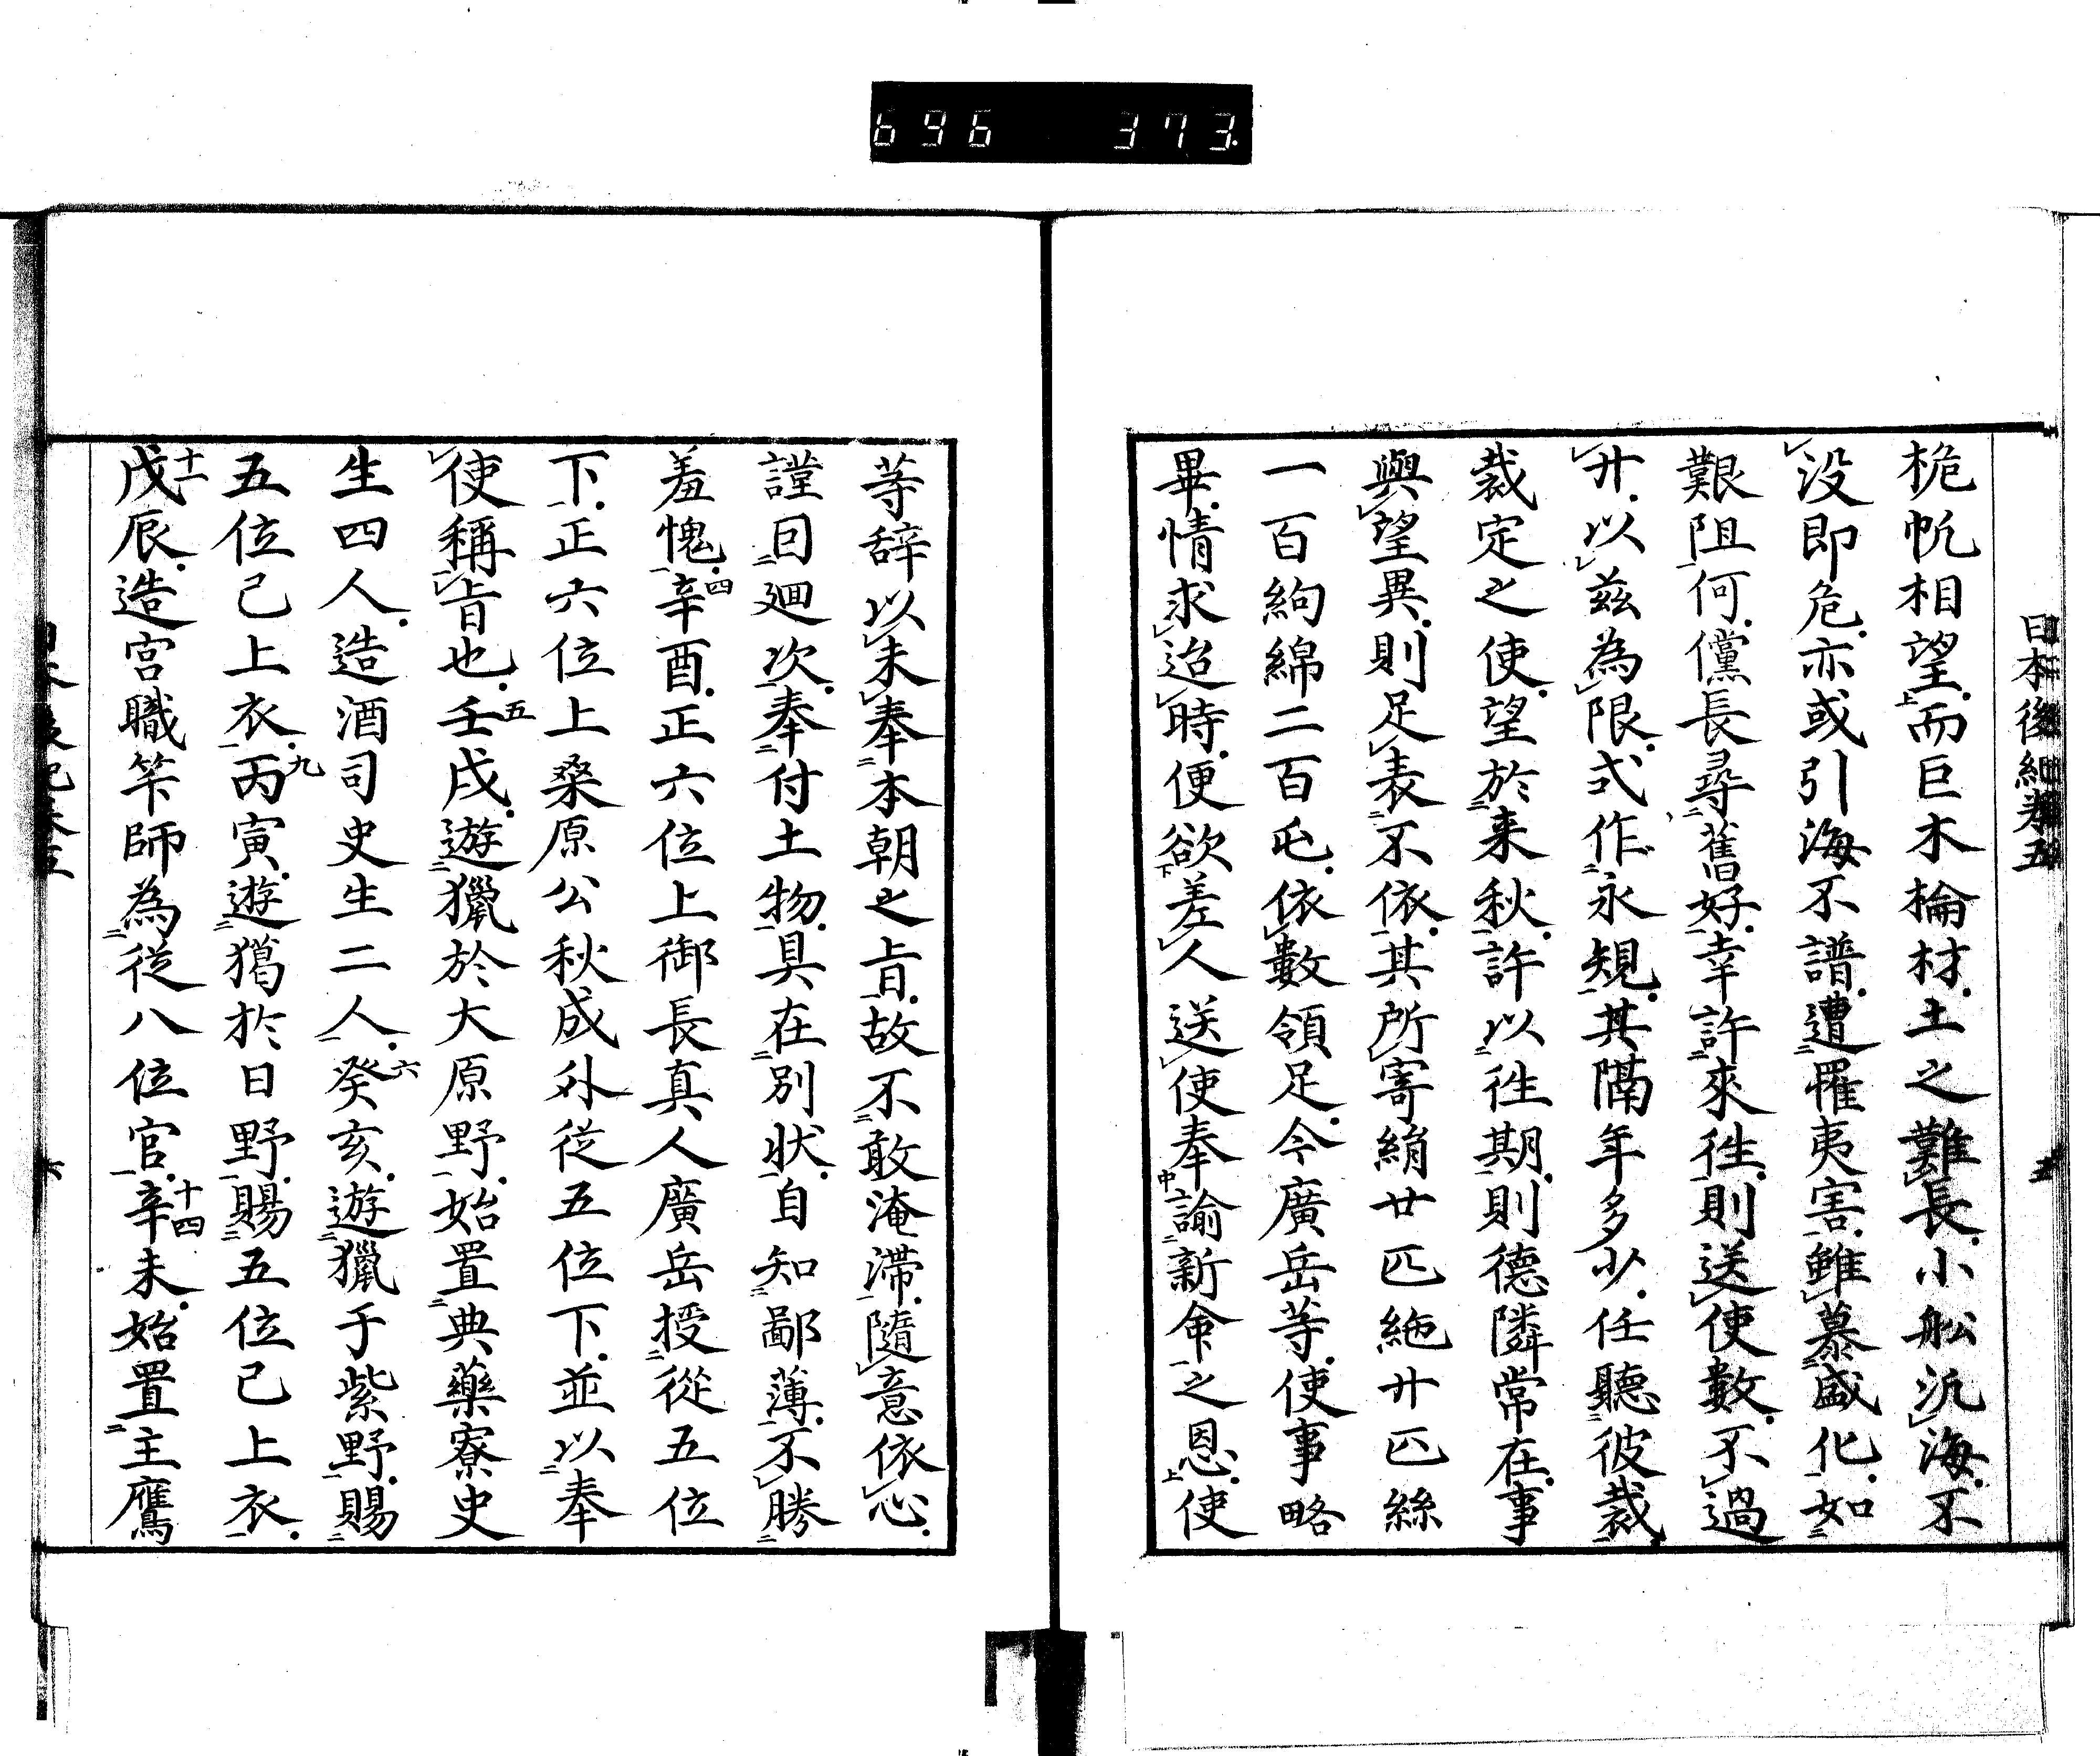 696 373
日本後紀卷五
五
桅帆相望而巨木掄材土之難長小舩汎海不
没即危亦或引海不諧遭罹夷害雖慕盛化如
艱阻何儻長尋舊好幸許來徃則送使數不過
廾以茲為限式作永規其隔年多少任聽彼裁
裁定之使望於来秋許以徃期則德隣常在事
與望異則足表不依其所寄絹廿匹絁廾匹絲
一百絇綿二百屯依數領足今廣岳等使事略
畢情求迨時便欲差人送使奉諭新命之恩使
等辞以未奉本朝之㫖故不敢淹滯隨意依心
謹囙廻次奉付土物具在別状自知鄙薄不勝
羞愧辛酉正六位上御長真人廣岳授從五位
下正六位上桒原公秋成外従五位下並以奉
使稱㫖也壬戌遊獵於大原野始置典藥寮史
生四人造酒司史生二人癸亥遊獵于紫野賜
五位已上衣丙寅遊獦於日野賜五位已上衣
戊辰造宮職筭師為従八位官辛未始置主鷹
四
五
六
九
十一
十四
六